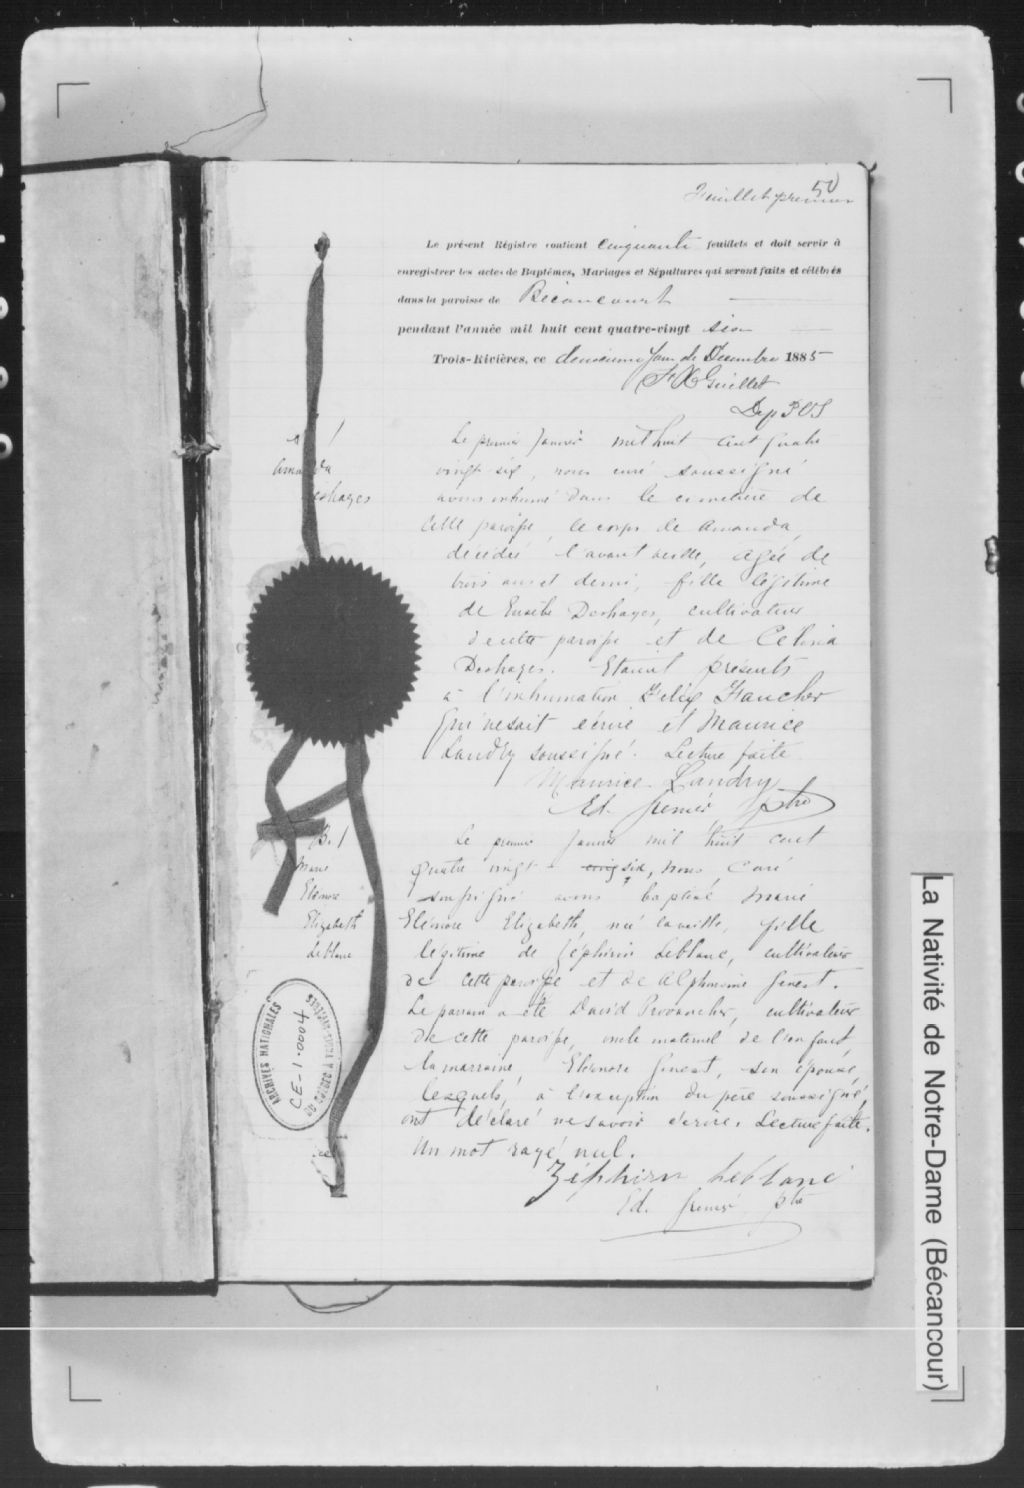 50
Feuillet premier
Le présent Régistre contient Cinquante feuillets et doit servir à
enregistrer les actes de Baptêmes, Mariages et Sépultures qui seront faits et célébrés
dans la paroisse de Bécancourt
pendant l'année mil huit cent quatre-vingt six
Trois-Rivières, ce deuxieme Jour de Decembre 1885
F X Guillet
Dep P C S
Le premier Janvier mil huit cent quatre
vingt six, nous curé soussigné
avons inhumé dans le cimetière de
cette paroisse, le corps de Amanda,
décédée l'avant veille, agée de
trois ans et demi, fille légitime
de Eusèbe Deshayes, cultivateur
de cette paroisse et de Celina
Deshayes. Etaient présents
à l'inhumation Félix Faucher
qui ne sait écrire et Maurice
Landry soussigné. Lecture faite.
Maurice Landry
Ptre
B. 1
Marie
Eléonore
Elizabeth
Leblanc
Le premier Janvier mil huit cent
quatre vingt six, nous, Curé
soussigné avons baptisé Marie
Eléonore Elizabeth, née la veille, fille
légitime de Zéphirin Leblanc, cultivateur
de cette paroisse et de Alphonsine Genest.
Le parrain a été David Provancher, cultivateur
de cette paroisse, oncle maternel de l'enfant,
la marraine, Eléonore Genest, son épouse,
lesquels, à l'exception du père soussigné,
ont déclaré ne savoir écrire. Lecture faite.
Un mot rayé nul.
Zéphirin Leblanc
Ptre
ARCHIVES NATIONALES
CE-1.0004
La Nativité de Notre-Dame (Bécancour)